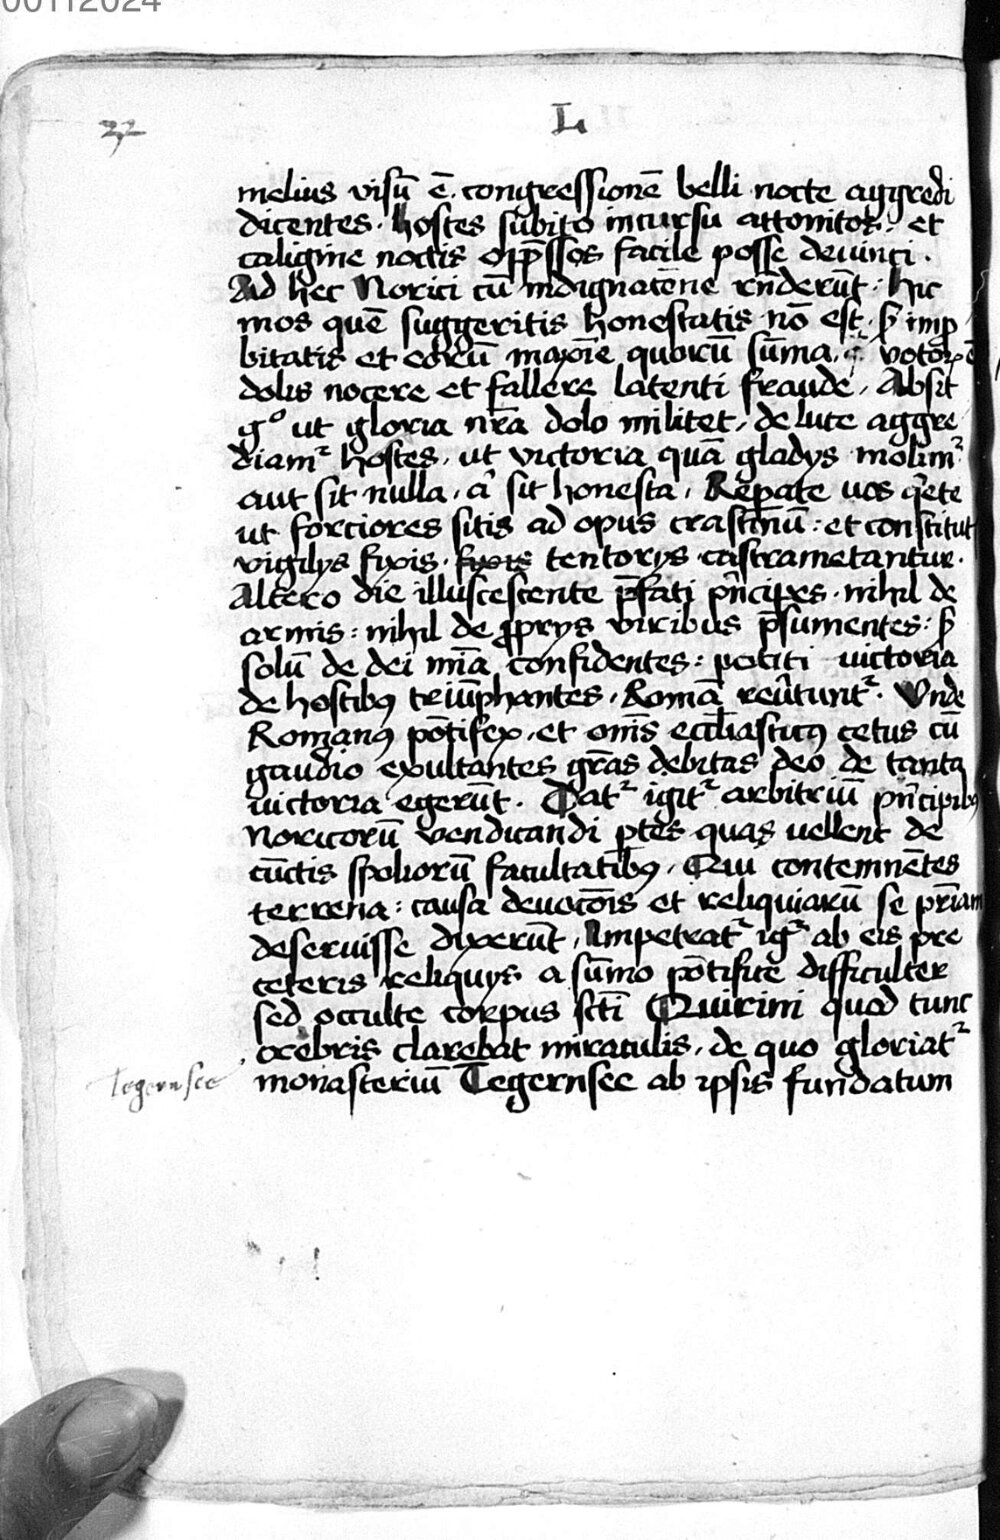 00112024
32
L
melius visū ē. congressionē belli nocte aggredi
dicentes. hostes subito incursu attonitos. et
caligine noctis opp̄ssos facile posse devinci.
Ad hec Norici cū indignatōne rn̄derūt. hic
mos quē suggeritis honestatis nō est. sꝫ imp̱
bitatis et eorū maxīe quorū sūma votoꝝ ē
dolis nocere et fallere latenti fraude. Absit
gͦ ut gloria nr̄a dolo militet, de luce aggre
diamᷣ hostes, ut victoria quā gladys molimᷣ
aut sit nulla, aut sit honesta. Rep̱ate vos q̇ete
ut forciores sitis ad opus crastinū: et constitut
vigilys fixis. fixis tentorys castrametantur.
Altero die illuscescente p̄fati p̄ncipes. nihil de
armis: nihil de ꝓprys viribus p̄sumentes: sꝫ
solū de dei mīa confidentes: potiti victoria
de hostibꝰ triūphantes. Romā rev̄tuntᷣ. Unde
Romanꝰ pōtifex, et om̄is eccl̄iasticꝰ cetus cū
gaudio exultantes gr̄as debitas deo de tanta
victoria egerūt. Datᷣ igitᷣ arbitriū p̄ncipibꝰ
Noricorū vendicandi p̱tes quas vellent de
cūctis spoliorū facultatibꝰ. Qui contemnētes
terrena: causa devocōis et reliquiarū se p̄riam
deseruisse dixerūt. Impetratᷣ igᷣ ab eis pre
ceteris reliquys a sūmo pōtifice difficulter
sed occulte corpus sct̄i Quirini quod tunc
crebris clarebat miraculis. de quo gloriatᷣ
Tegernsee
monasteriū Tegernsee ab ipsis fundatum